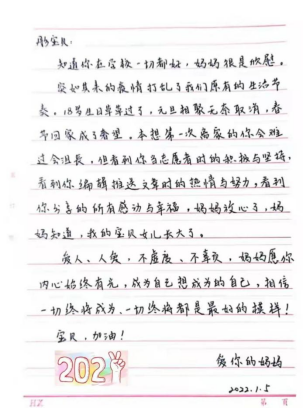 彤宝贝：
知道你在学校一切都好，妈妈很是欣慰。
突如其来的疫情打乱了我们原有的生活节
奏，18岁生日草草过了，元旦相聚无奈取消，春
节回家成了奢望。本想第一次离家的你会难
过会沮丧，但看到你当志愿者时的积极与坚持，
看到你编辑推送文章时的热情与努力，看到
你分享的所有感动与幸福，妈妈放心了，妈
妈知道，我的宝贝女儿长大了。
爱人、人爱，不虚度、不辜负，妈妈愿你
内心始终有光，成为自己想成为的自己，相信
一切终将成为，一切终将都是最好的模样！
宝贝，加油！
202
爱你的妈妈
2022.1.5
HZ 第 页